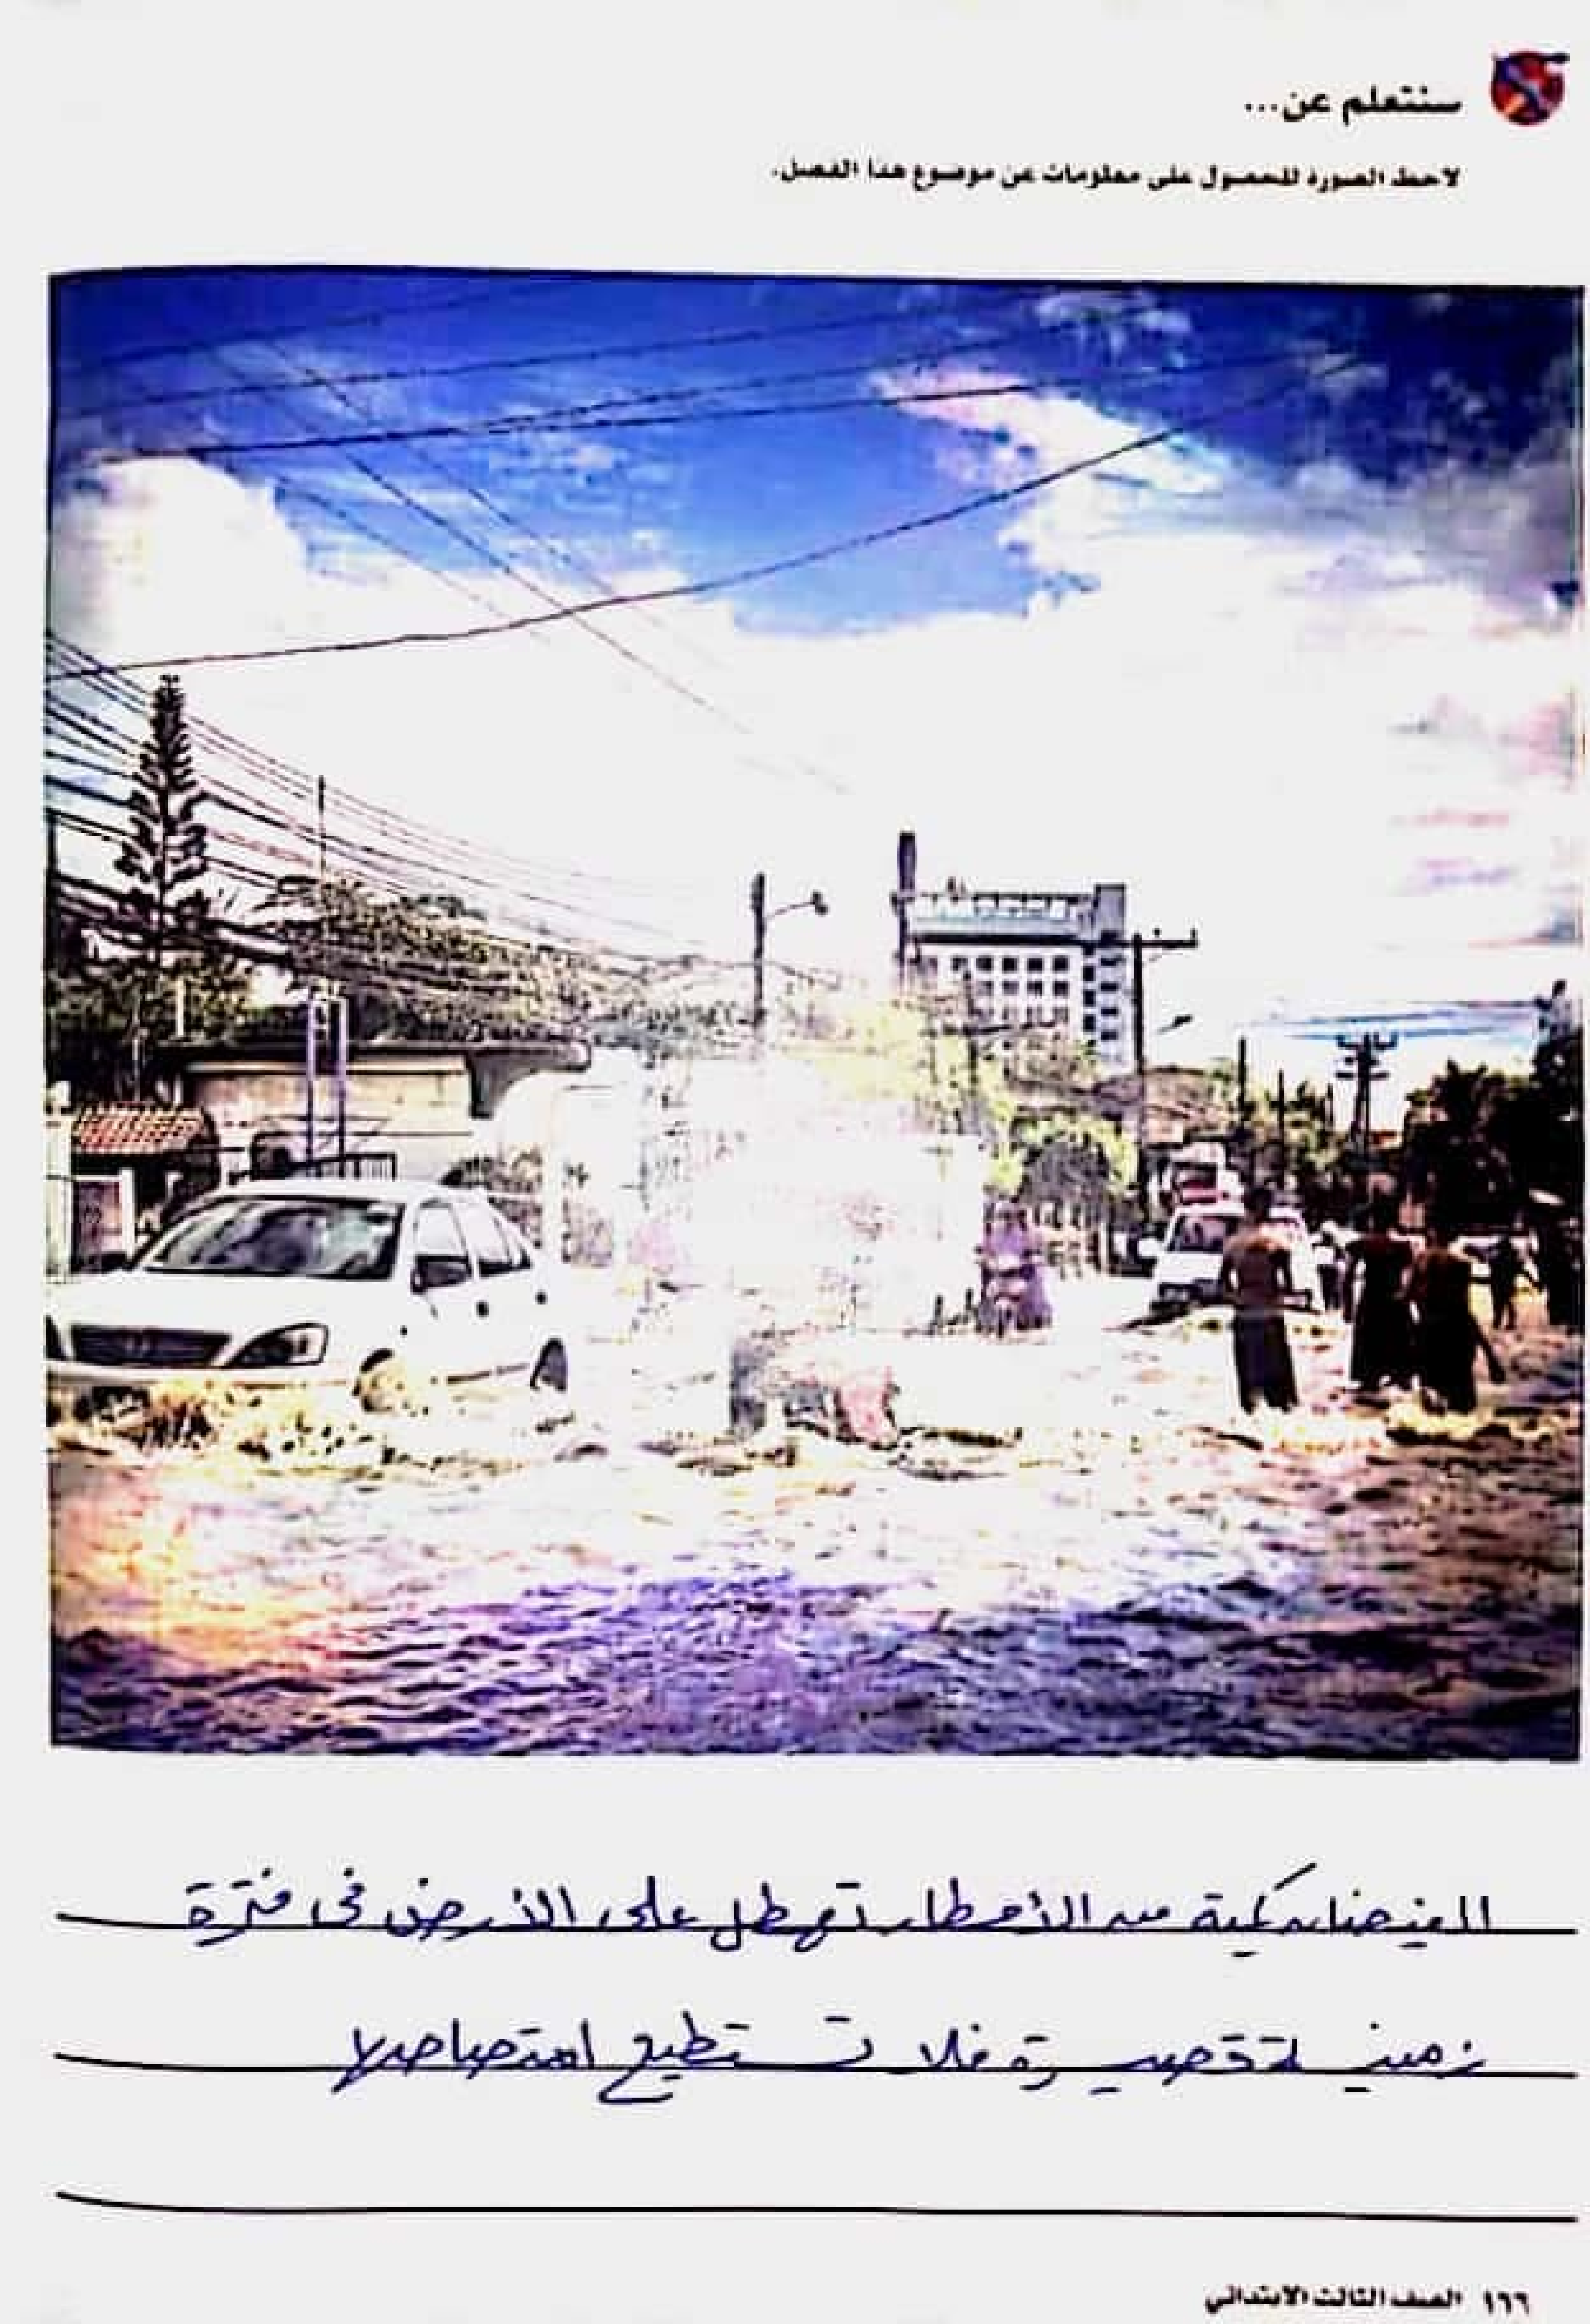 سنتعلم عن...
لاحظ الصورة للحصول على معلومات عن موضوع هذا الفصل.
الفيضان كمية من الأمطار تهطل على الأرض فى فترة
زمنية قصيرة فلا تستطيع امتصاصها
١٦٦ الصف الثالث الابتدائي